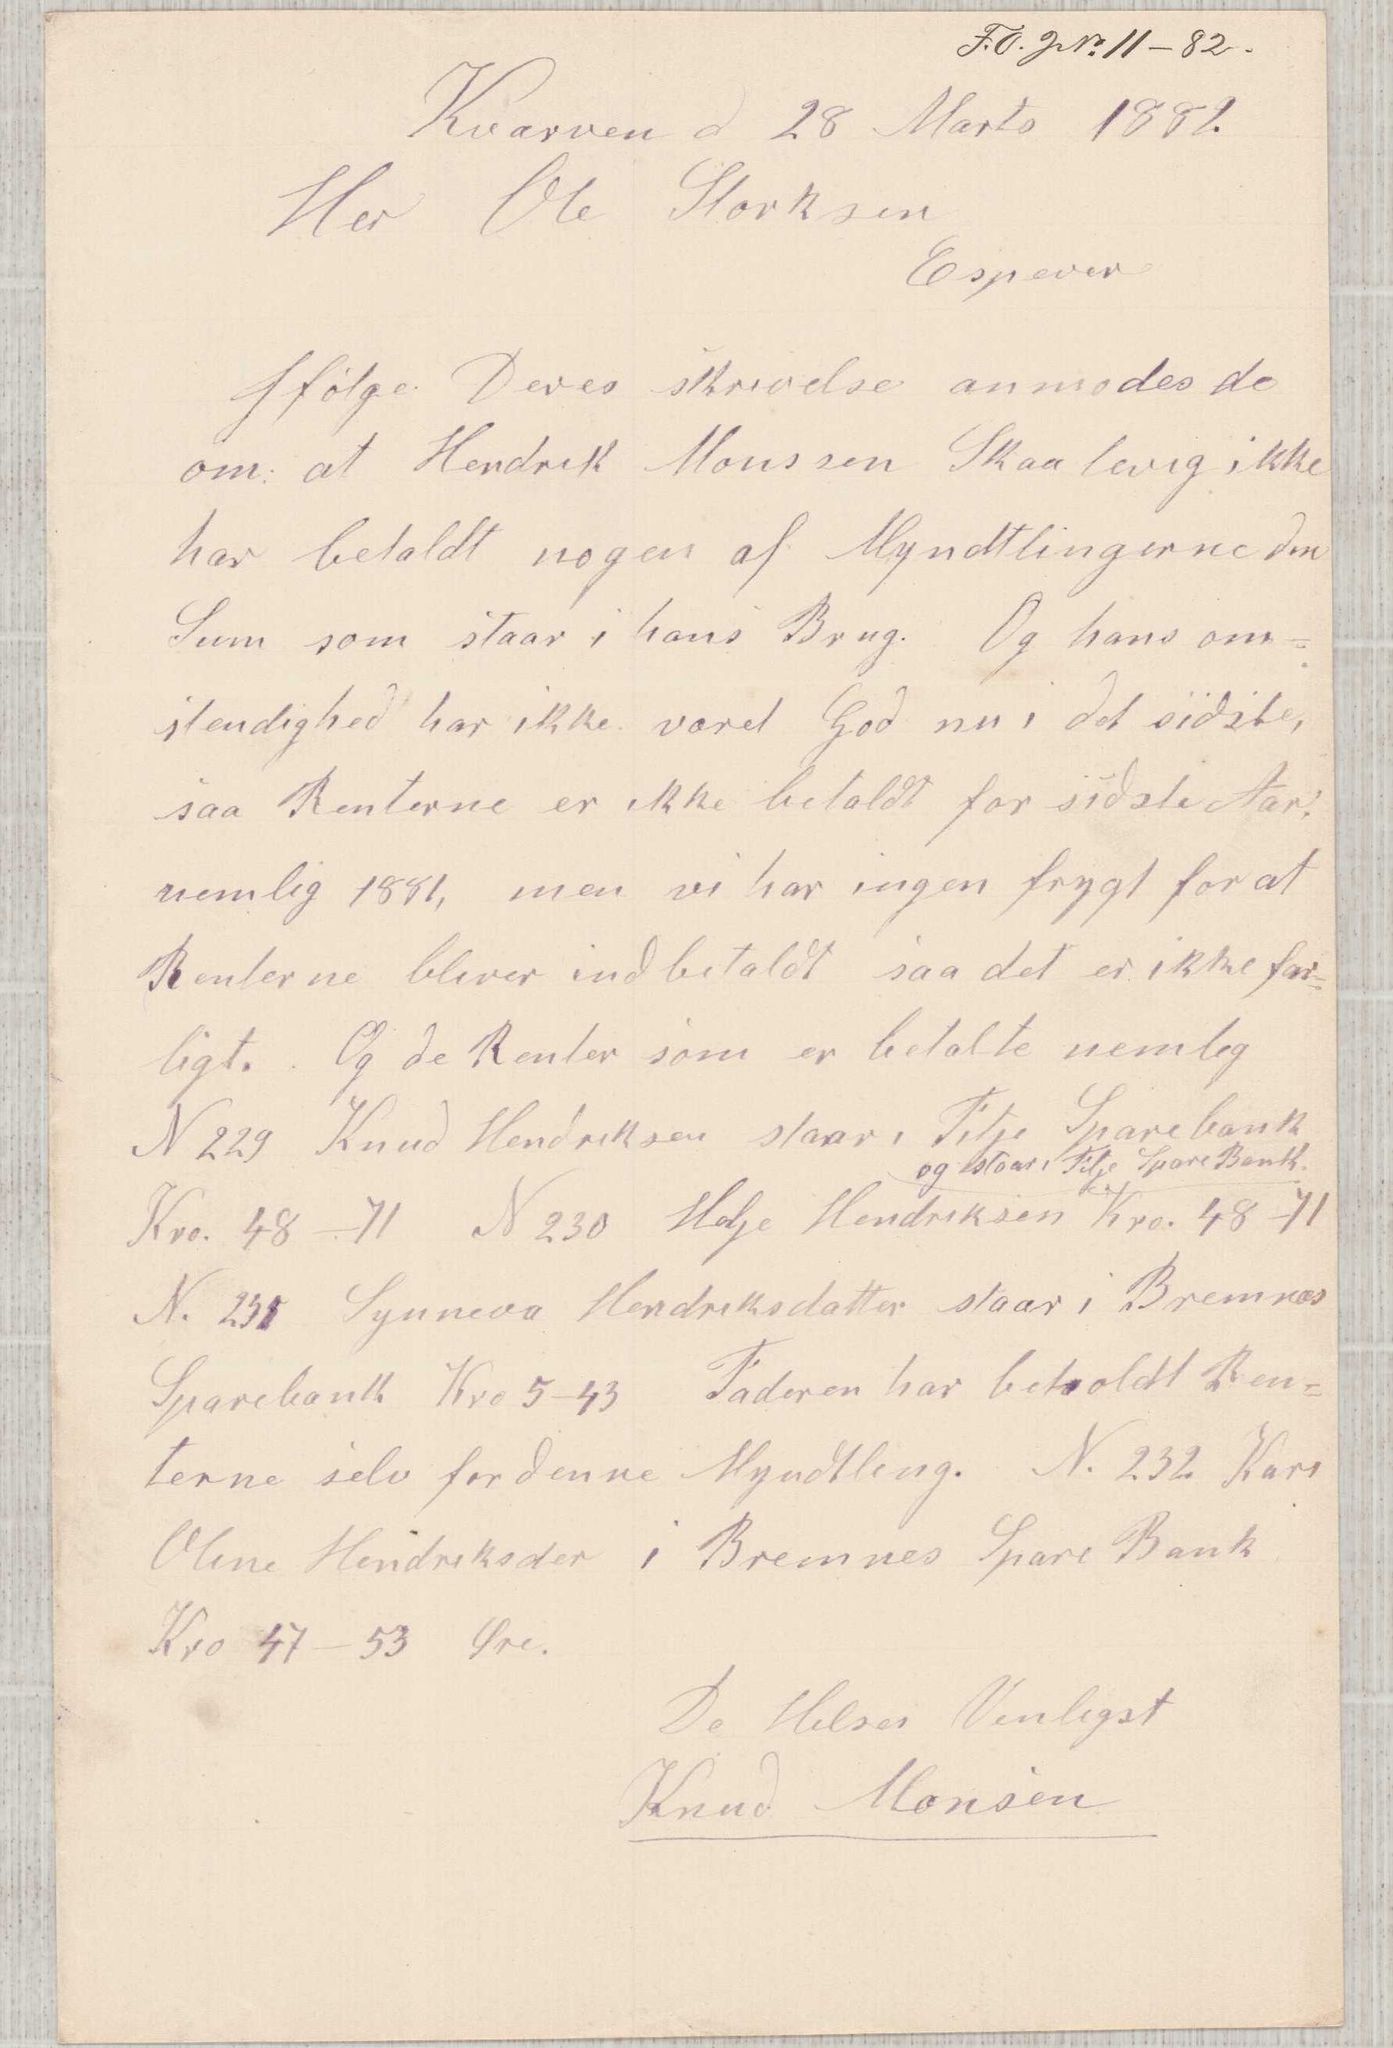 F.O. J No. 11 – 82.
Kvarven d 28 Marts 1882.
Her Ole Storksen
Espever
Ifölge Deres skrivelse anmodes de
om: at Hendrik Monssen Skaalevig ikke
har betaldt nogen af Myndtlingerne den
Sum som staar i hans Brug. Og hans om=
stendighed har ikke varet God nu i det sidste,
saa Renterne er ikke betaldt for sidste Aar,
nemlig 1881, men vi har ingen frygt for at
Renterne bliver indbetaldt saa det er ikke far=
ligt. Og de Renter som er betalte nemlig
N 229 Knud Hendriksen staar i Fitje Sparebank
og staar i Fitje Spare Bank.
Kro. 48 – 71 N 230 Helje Hendriksen Kro. 48 – 71
N. 231 Synneva Hendriksdatter staar i Bremnæs
Sparebank Kro 5 – 43 Faderen har betaldt Ren=
terne selv for denne Myndtling. N. 232 Kari
Oline Hendriksder i Bremnes Spare Bank
Kro 47 – 53 Øre.
De Helses Venligst
Knud Monsen